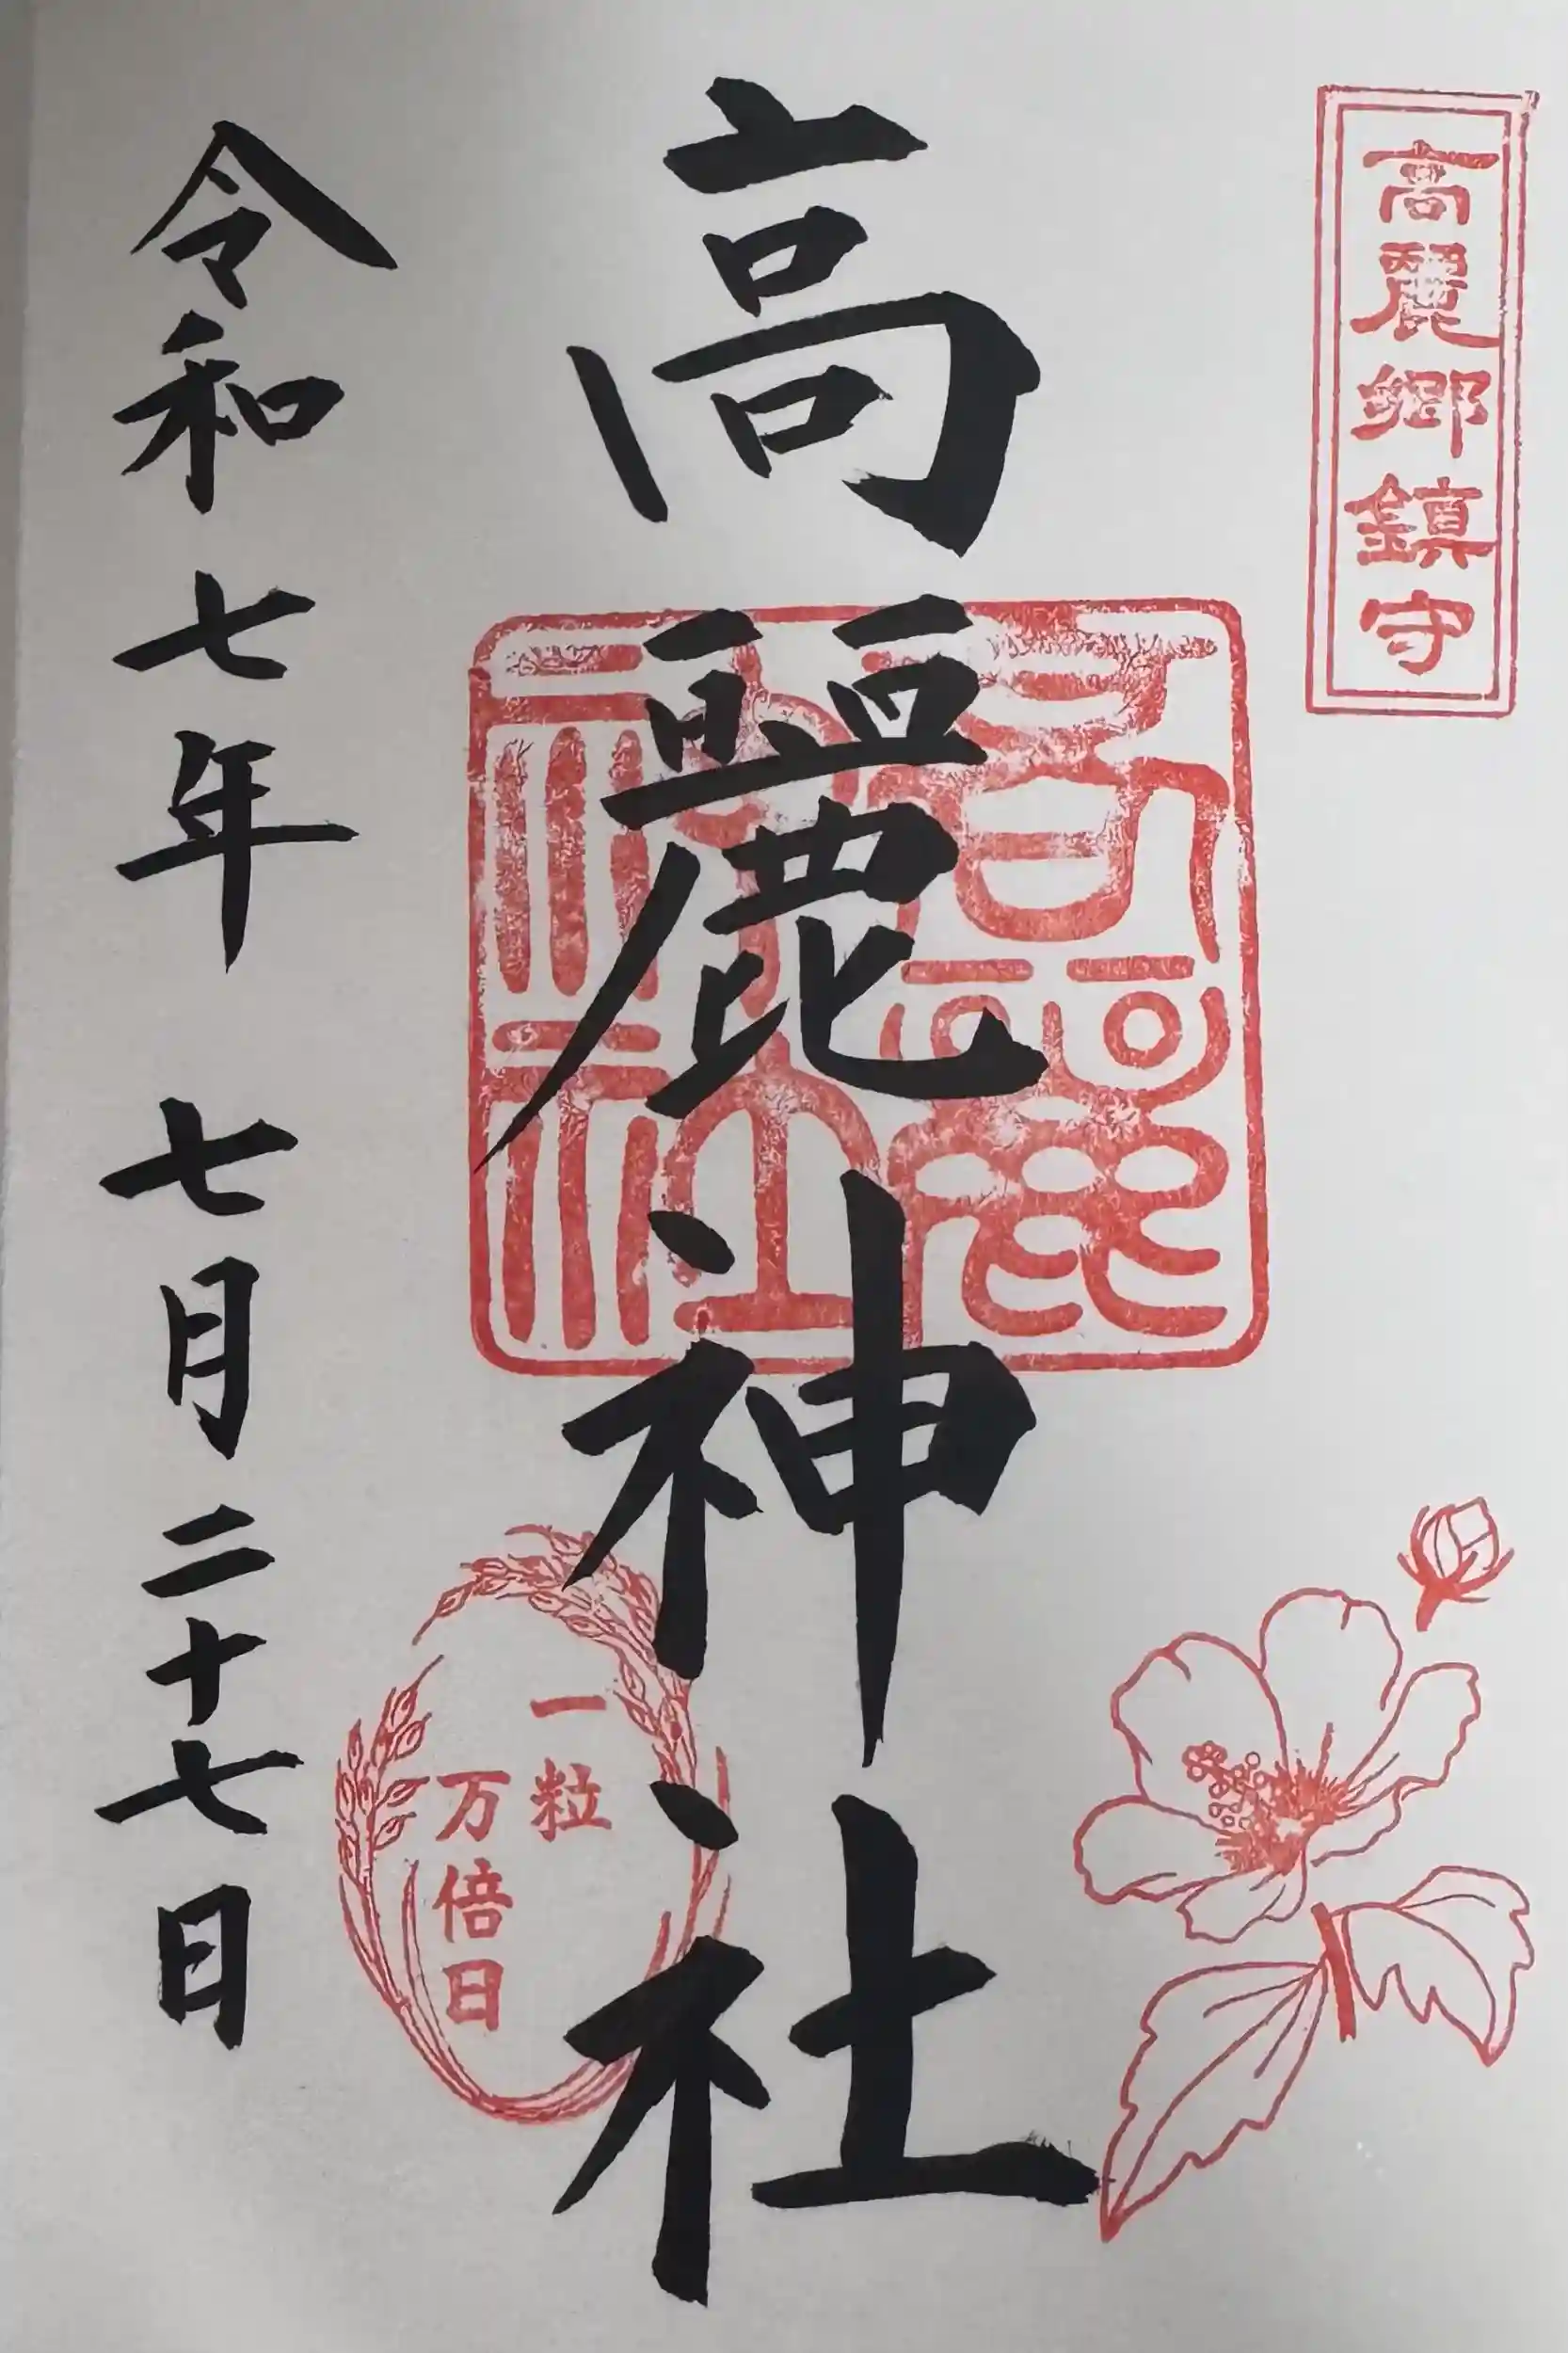 高麗郷鎮守
高麗神社
高麗
神社
一粒
万倍日
令和七年 七月二十七日